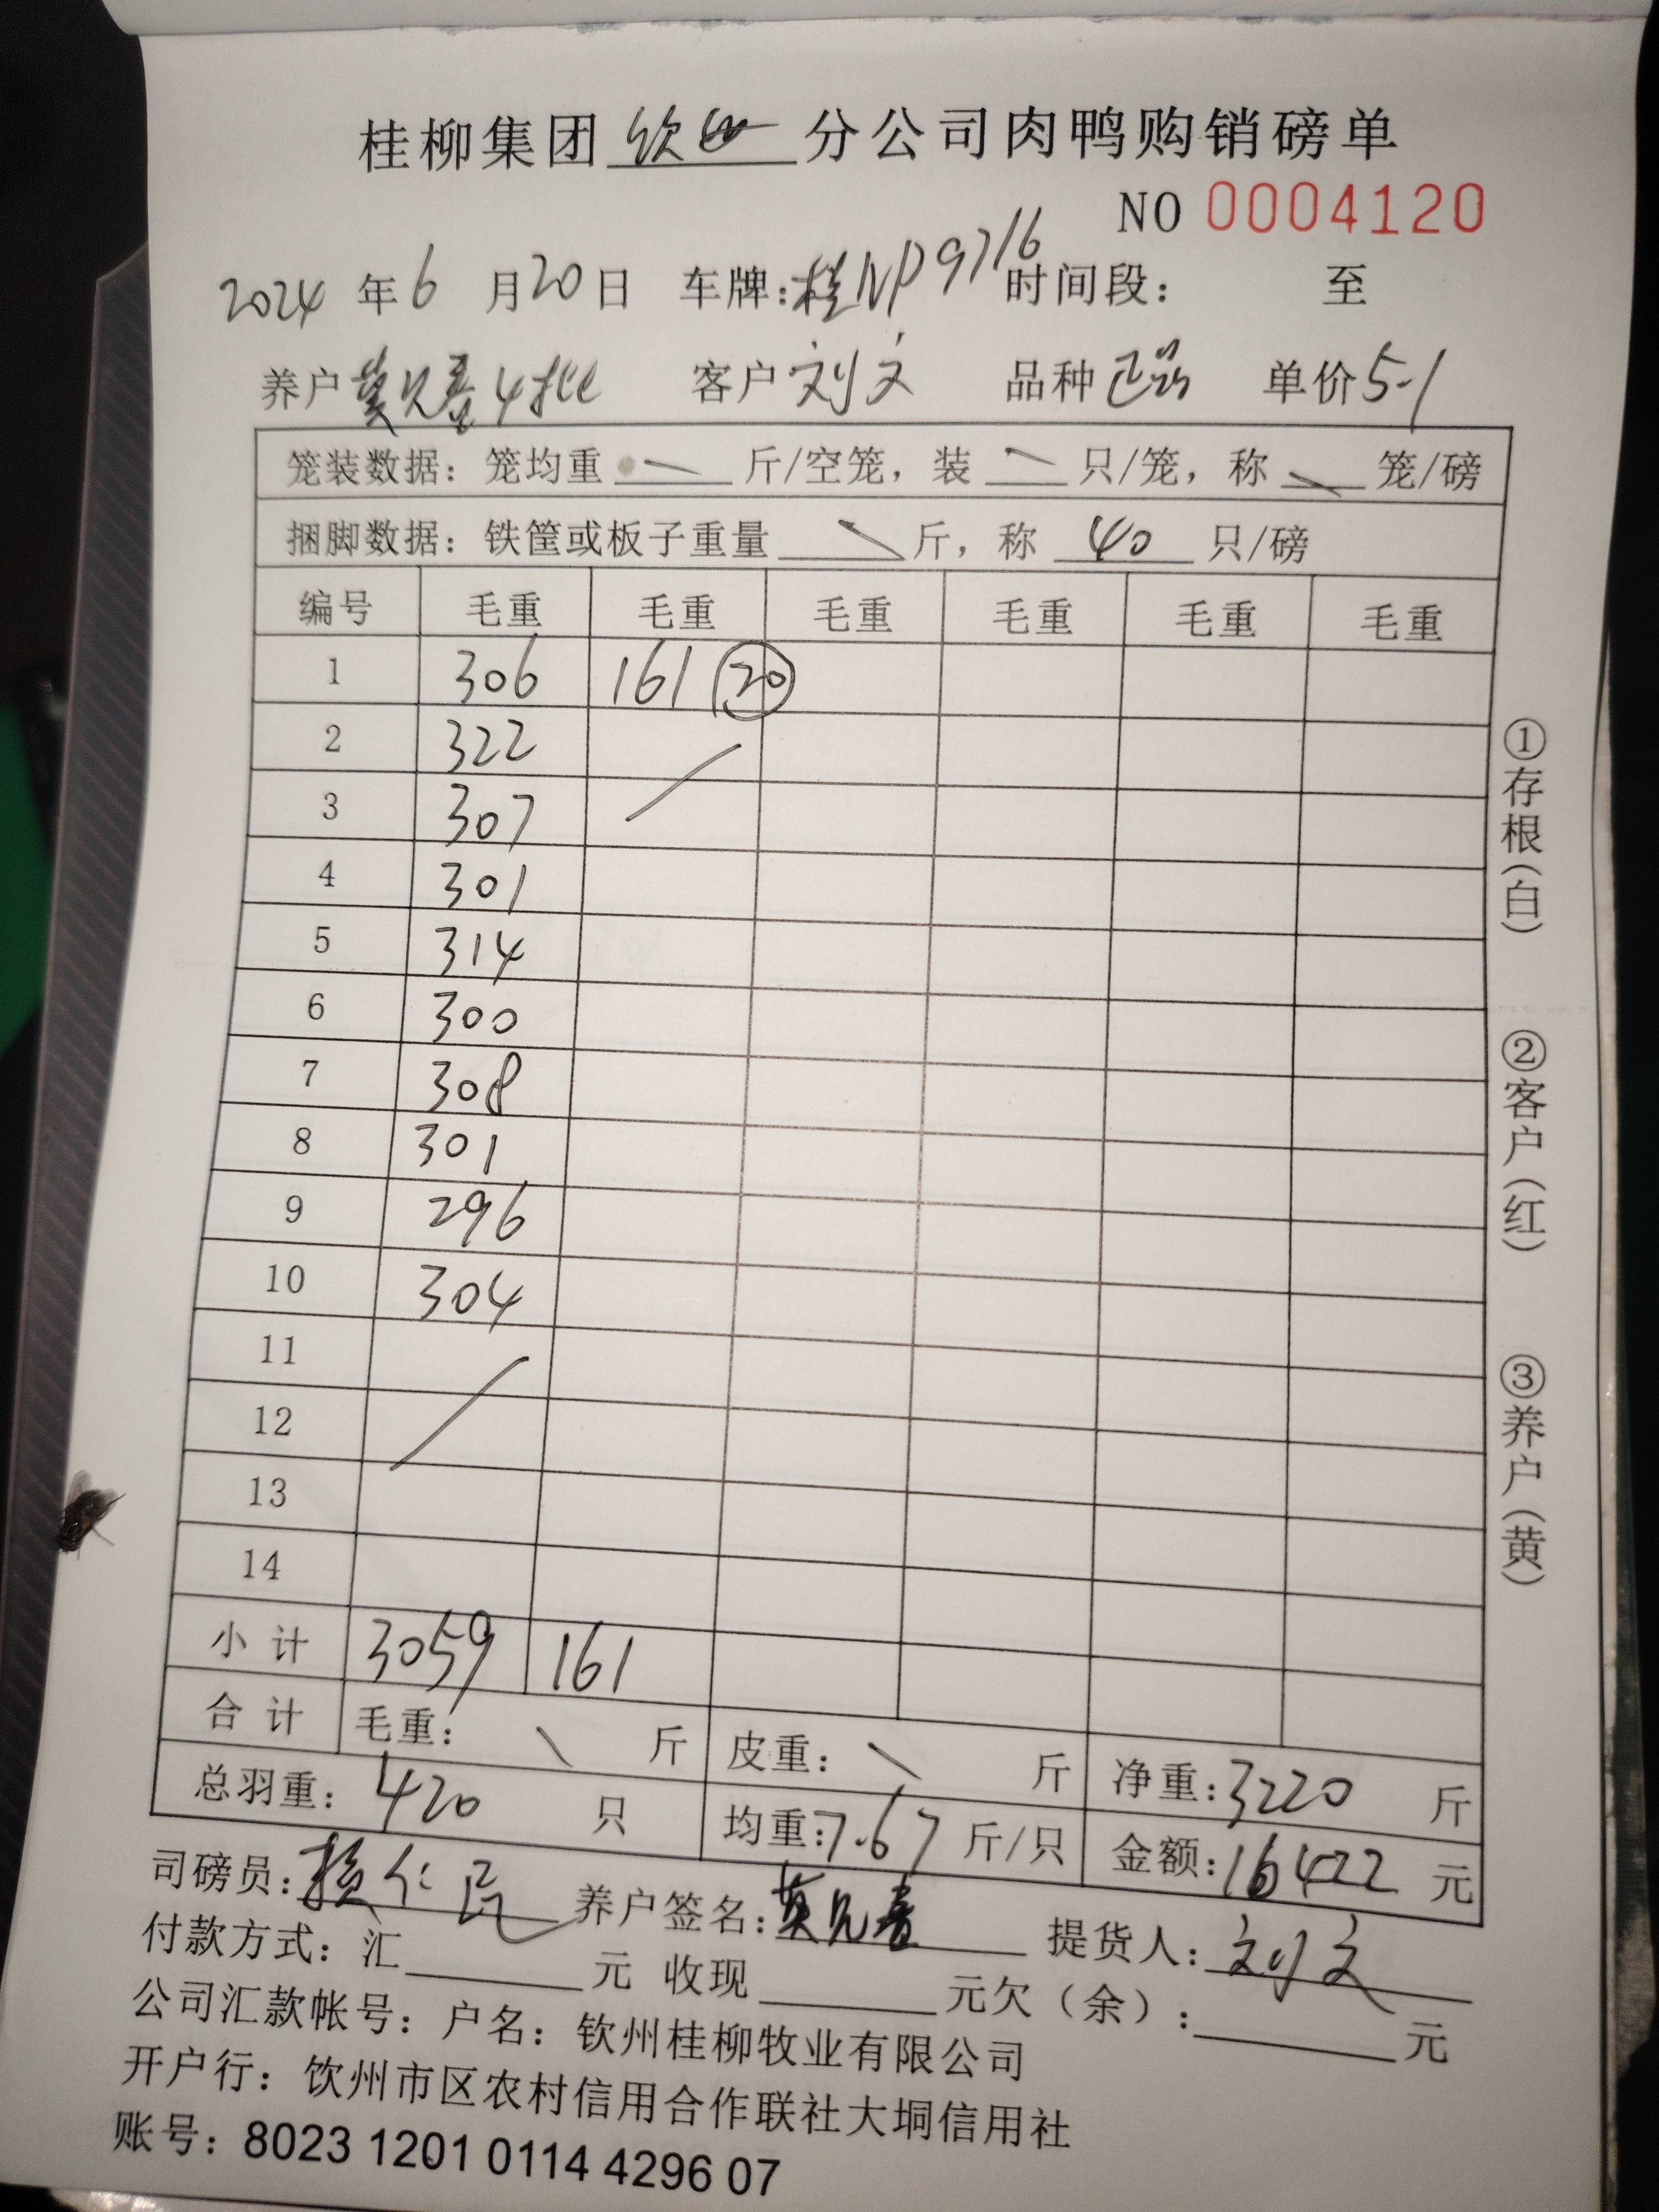 桂柳集团 钦州 分公司肉鸭购销磅单
NO 0004120
2024 年 6 月 20 日 车牌:桂NP9716 时间段: 至
养户 莫兄春 4批 客户 刘文 品种 单价 5-1
笼装数据: 笼均重 斤/空笼, 装 只/笼, 称 笼/磅
捆脚数据: 铁筐或板子重量 斤, 称 40 只/磅
编号 毛重 毛重 毛重 毛重 毛重 毛重
1 306 161 20
2 322
3 307
4 301
5 314
6 300
7 308
8 301
9 296
10 304
11
12
13
14
小计 3059 161
合计 毛重: 斤 皮重: 斤 净重: 3220 斤
总羽重: 420 只 均重: 7.67 斤/只 金额: 16422 元
司磅员: 养户签名: 莫兄春 提货人: 刘文
付款方式: 汇 元 收现 元欠(余): 元
公司汇款帐号: 户名: 钦州桂柳牧业有限公司
开户行: 钦州市区农村信用合作联社大垌信用社
账号: 8023 1201 0114 4296 07
①存根(白)
②客户(红)
③养户(黄)